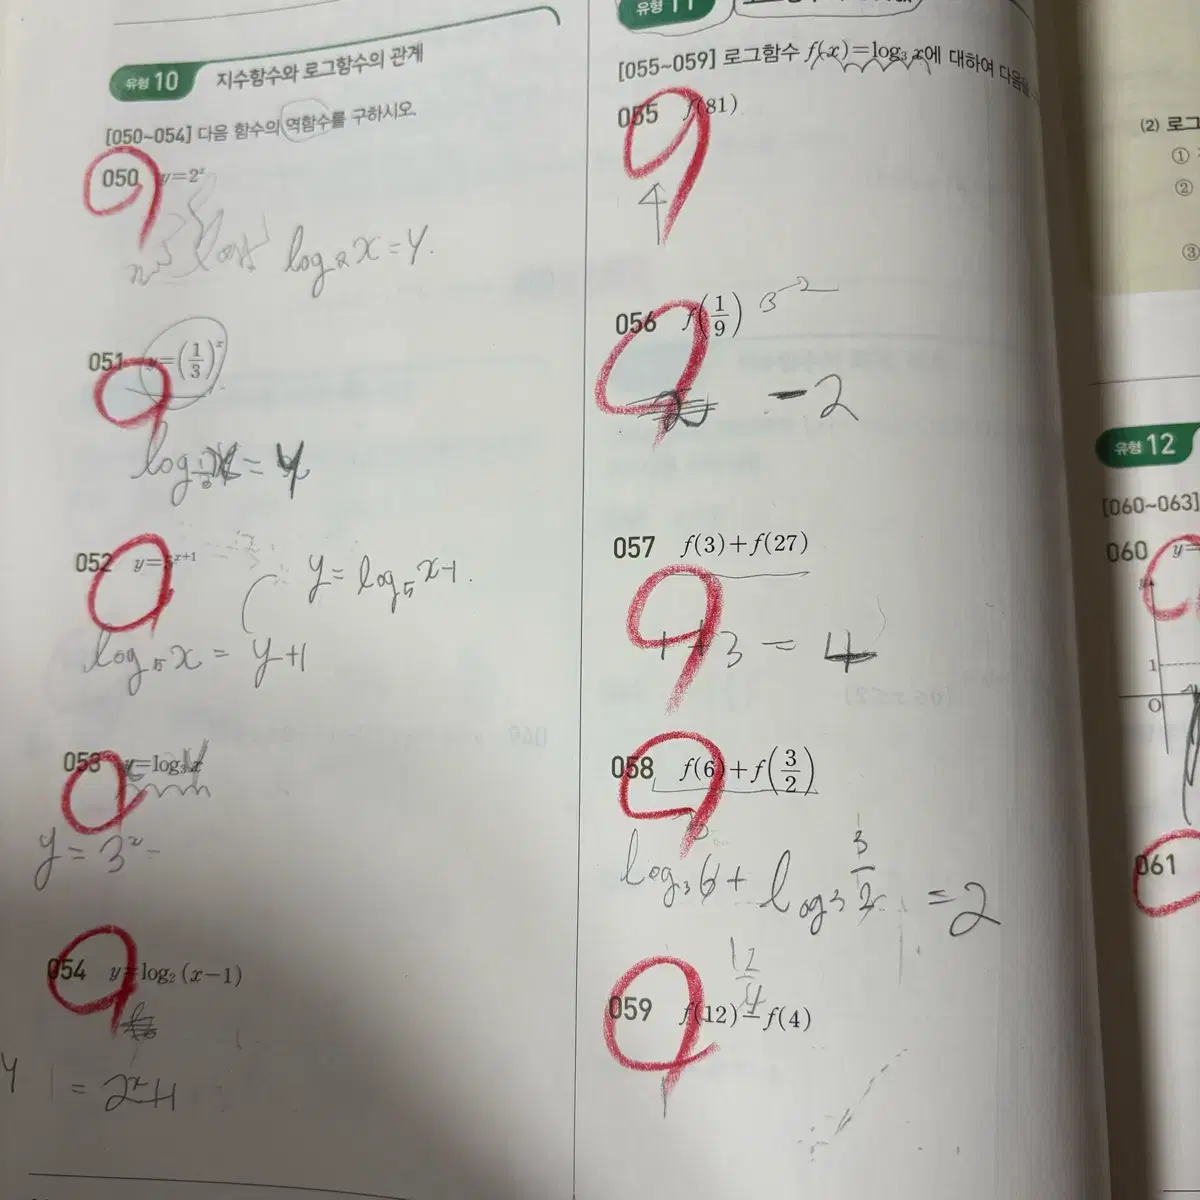 유형 10 지수함수와 로그함수의 관계
[050~054] 다음 함수의 역함수를 구하시오.
050 y=2ˣ
log₂x=y.
051 y=(1/3)ˣ
052 y=5ˣ⁺¹
y=log₅x-1.
log₅x=y+1
053 y=log₃x
y=3ˣ
054 y=log₂(x-1)
y=2ˣ+1
유형 11
[055~059] 로그함수 f(x)=log₃x에 대하여 다음을
055 f(81)
4
056 f(1/9) 3⁻²
-2
057 f(3)+f(27)
1+3=4
058 f(6)+f(3/2)
log₃6+log₃3/2=2
12/4
059 f(12)-f(4)
1
(2) 로그
①
②
③
유형 12
[060~063]
060 y=
y
1
O
061